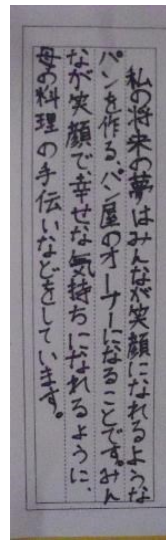 私の将来の夢はみんなが笑顔になれるような
パンを作る、パン屋のオーナーになることです。みん
なが笑顔で、幸せな気持ちになれるように、
母の料理の手伝いなどをしています。